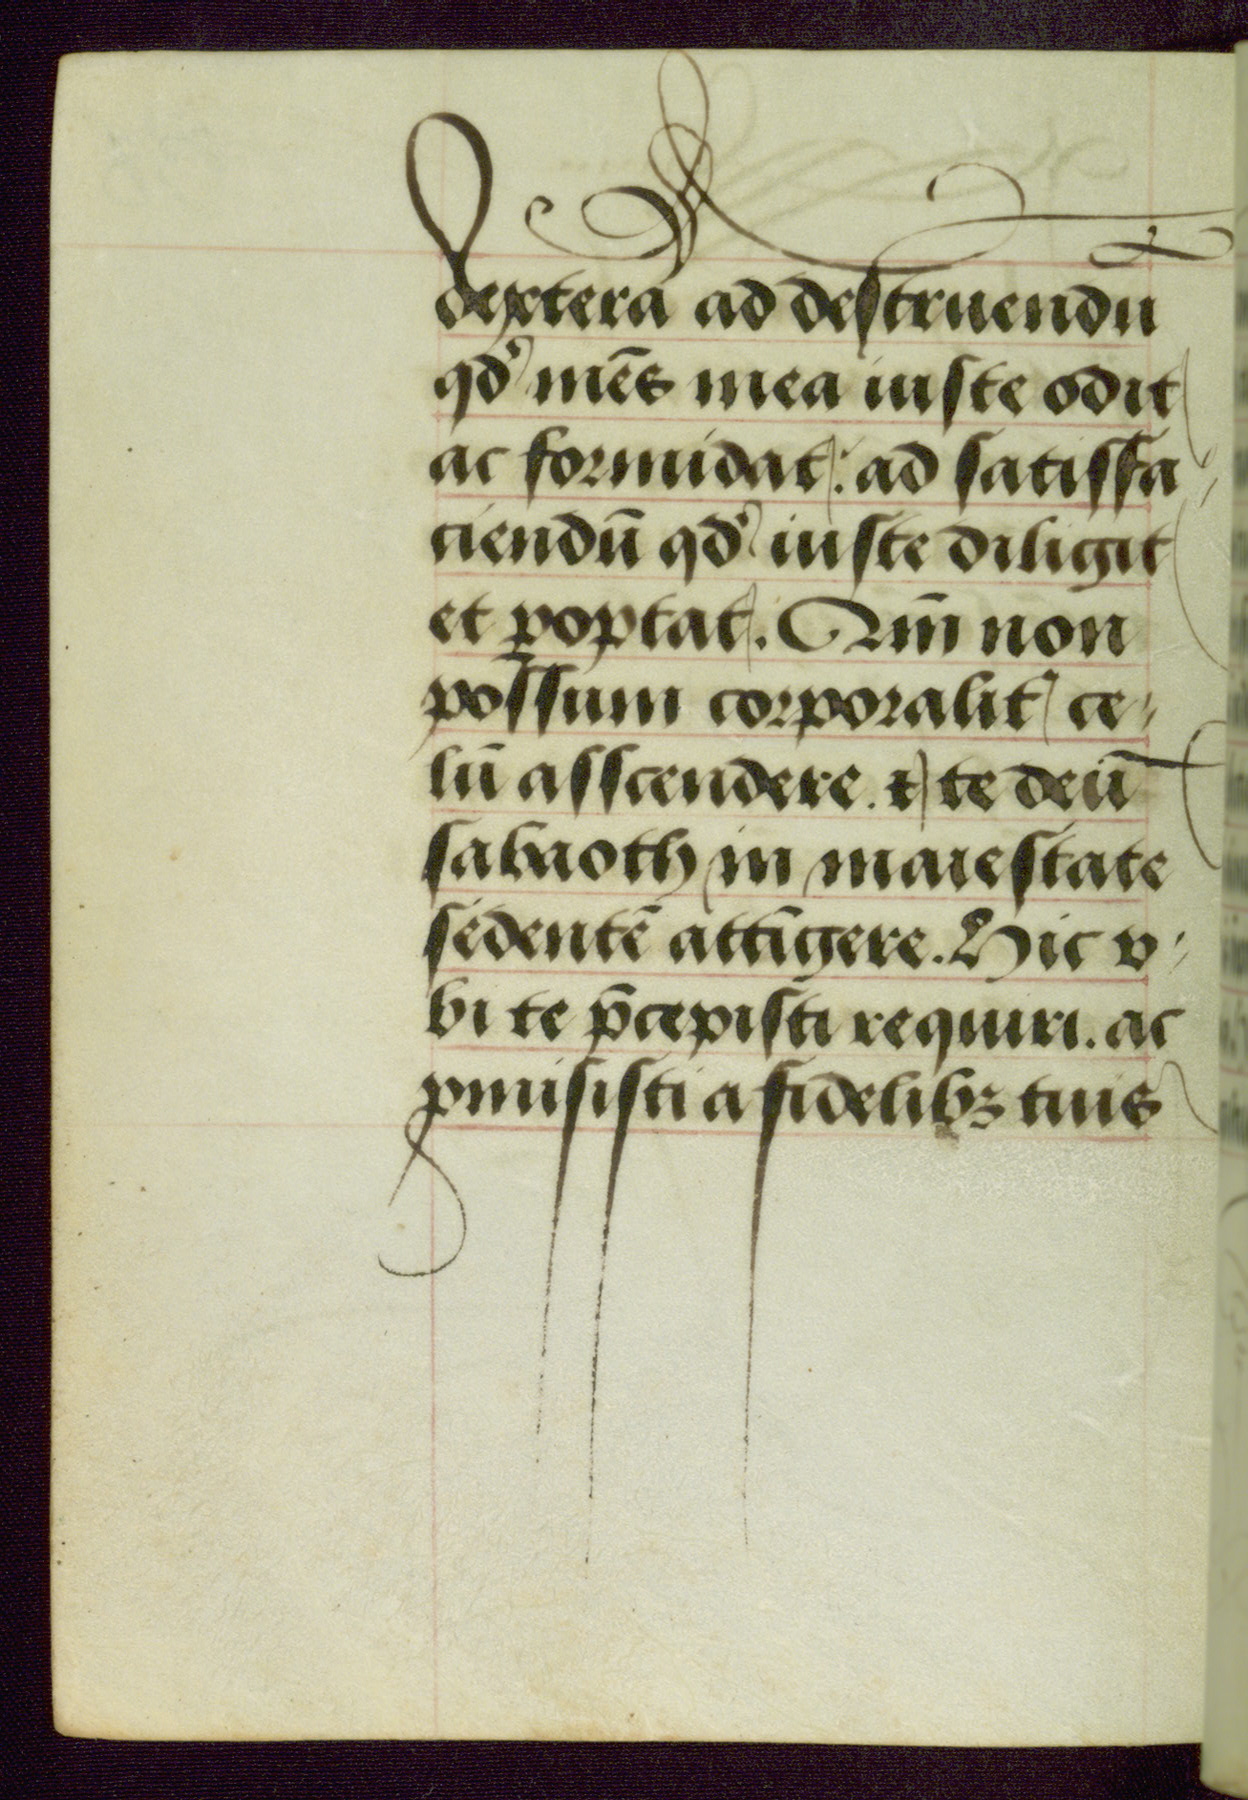 dextera ad destruendu
qd' mēs mea iuste odit
ac formidat: ad satisfa
ciendū qd' iuste diligit
et poptat. Qm̄ non
possum corporalit' ce-
lū asscendere. & te deū
sabaoth in maiestate
sedentē attīgere. Hic v-
bi te p̄cepisti requiri. ac
pmisisti a fidelibꝫ tuis